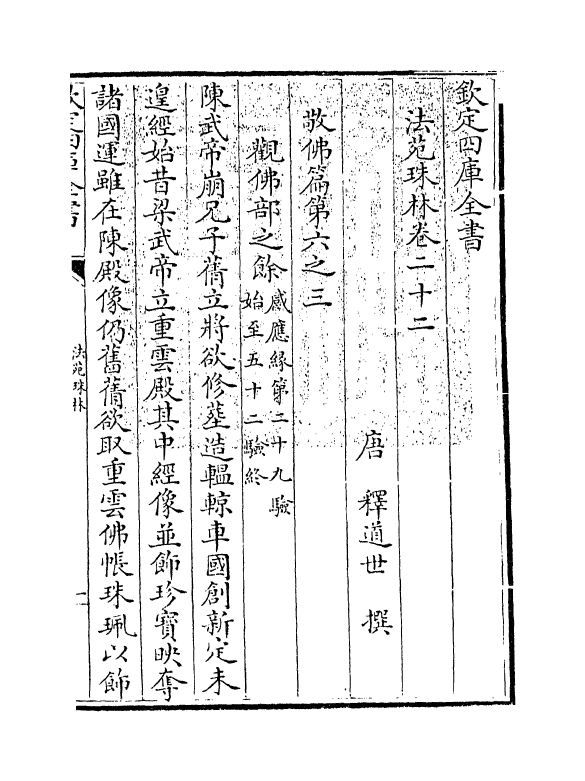 欽定四庫全書
法苑珠林卷二十二
唐 釋道世 撰
敬佛篇第六之三
觀佛部之餘感應緣第二十九驗
始至五十二驗終
陳武帝崩兄子蒨立將欲修塟造轀輬車國創新定未
遑經始昔梁武帝立重雲殿其中經像並飾珍寳映奪
諸國運雖在陳殿像仍舊蒨欲取重雲佛帳珠珮以飾
欽定四庫全書
法苑珠林
一